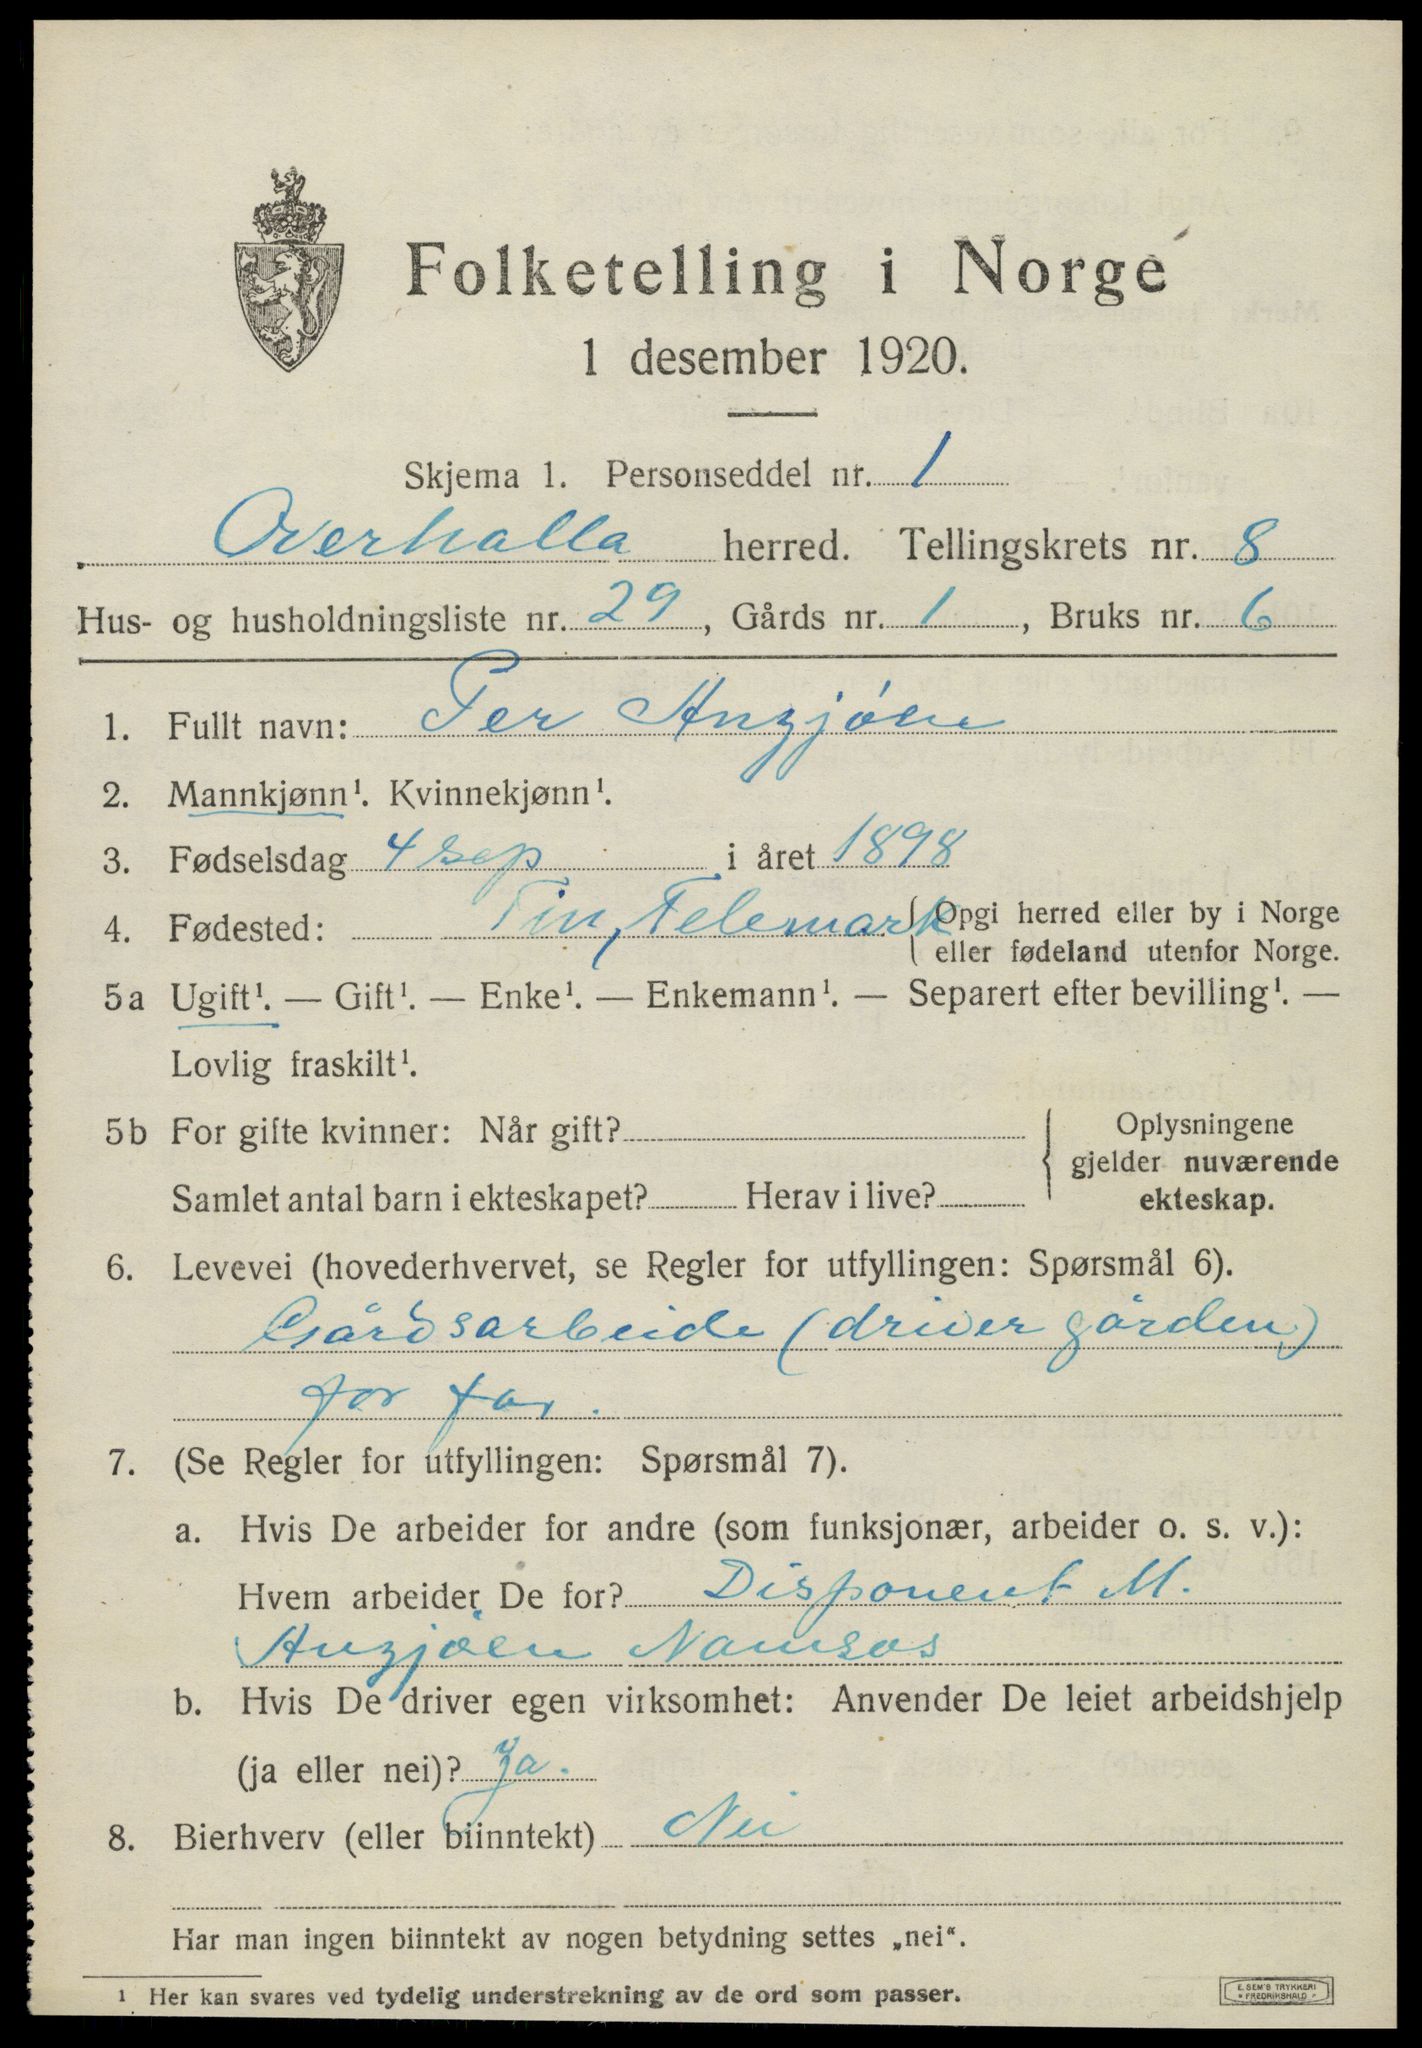 Folketelling i Norge
1 desember 1920.
Skjema 1. Personseddel nr. 1
Overhalla herred. Tellingskrets nr. 8
Hus- og husholdningsliste nr. 29, Gårds nr. 1, Bruks nr. 6
1. Fullt navn: Per Anzjøen
2. Mannkjønn¹. Kvinnekjønn¹.
3. Fødselsdag 4 sep i året 1898
4. Fødested: Tin, Telemark { Opgi herred eller by i Norge
eller fødeland utenfor Norge.
5a Ugift¹. — Gift¹. — Enke¹. — Enkemann¹. — Separert efter bevilling¹. —
Lovlig fraskilt¹.
5b For gifte kvinner: Når gift? Oplysningene
gjelder nuværende
Samlet antal barn i ekteskapet? Herav i live? ekteskap.
6. Levevei (hovederhvervet, se Regler for utfyllingen: Spørsmål 6).
Gårdsarbeide (driver gården)
for far.
7. (Se Regler for utfyllingen: Spørsmål 7).
a. Hvis De arbeider for andre (som funksjonær, arbeider o. s. v.):
Hvem arbeider De for? Disponent M.
Anzjøen Namsos
b. Hvis De driver egen virksomhet: Anvender De leiet arbeidshjelp
(ja eller nei)? Ja.
8. Bierhverv (eller biinntekt) Nei
Har man ingen biinntekt av nogen betydning settes „nei“.
¹ Her kan svares ved tydelig understrekning av de ord som passer.
E. SEM'S TRYKKERI
FREDRIKSHALD